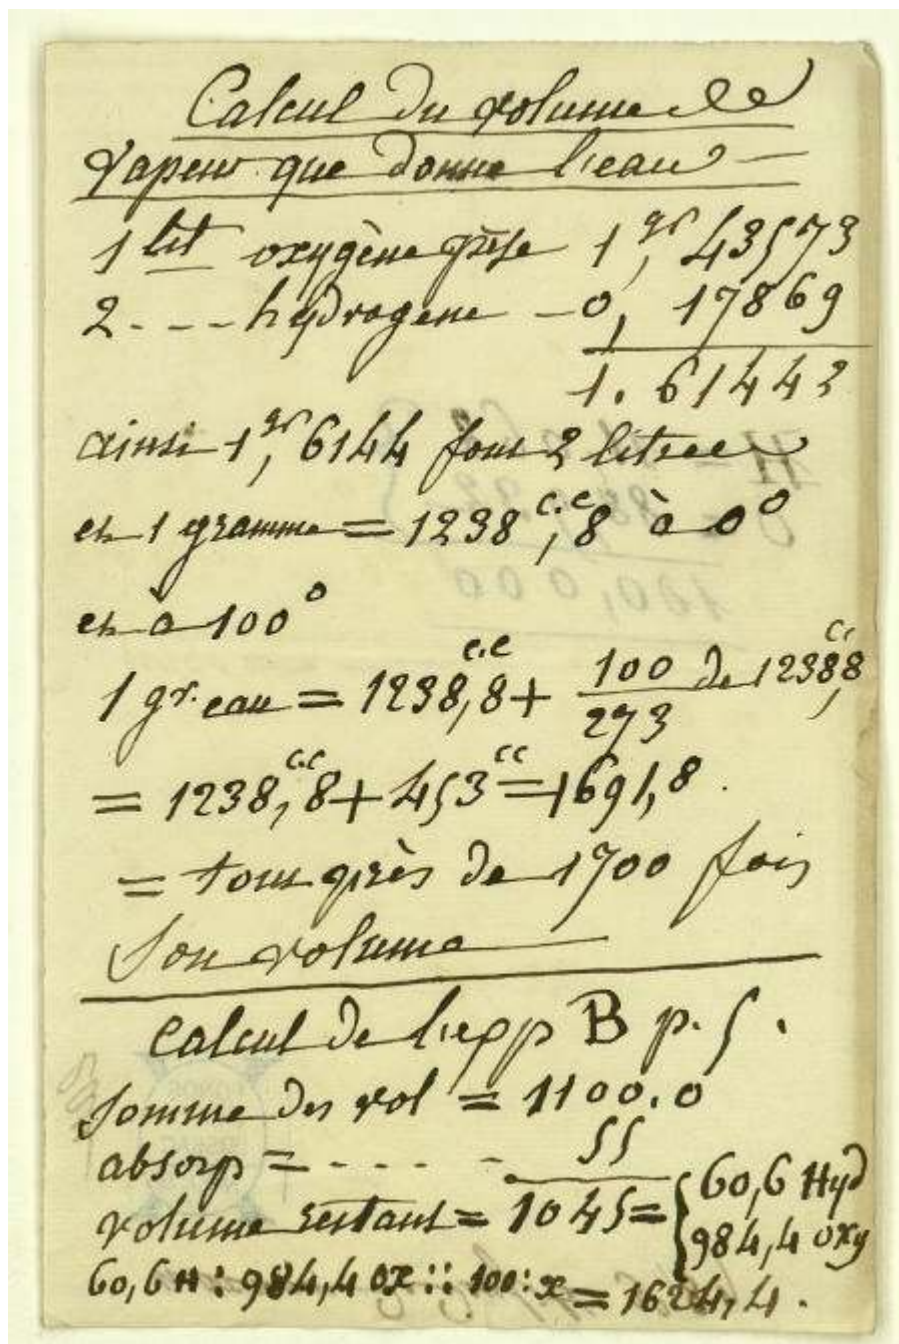 Calcul du volume de
vapeur que donne l'eau —
1 lit oxygène pèse 1,gr 43573
2 - - - hydrogene - 0, 17869
1. 61442
ainsi 1,gr 6144 font 2 litres
et 1 gramme = 1238,c.c 8 à 0°
et à 100°
1 gr. eau = 1238,c.c 8 + 100/273 de 1238,cc 8
= 1238,c.c 8 + 453cc = 1691,8.
= tout près de 1700 fois
son volume
Calcul de l'exp B p. 5.
Somme des vol = 1100.0
absorp = - - - - - 55
volume restant = 1045 = { 60,6 Hyd
984,4 oxy
60,6 H : 984,4 ox :: 100 : x = 1624,4.